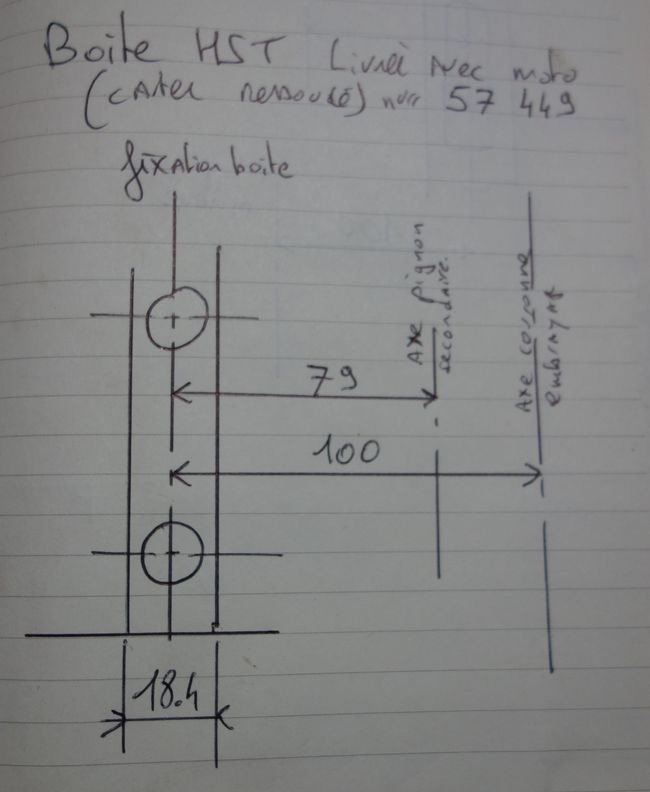 Boite HST Livrée avec moto
(carter ressoudé) n° 57 449
fixation boite
Axe pignon
secondaire.
Axe couronne
embrayage
79
100
18.4